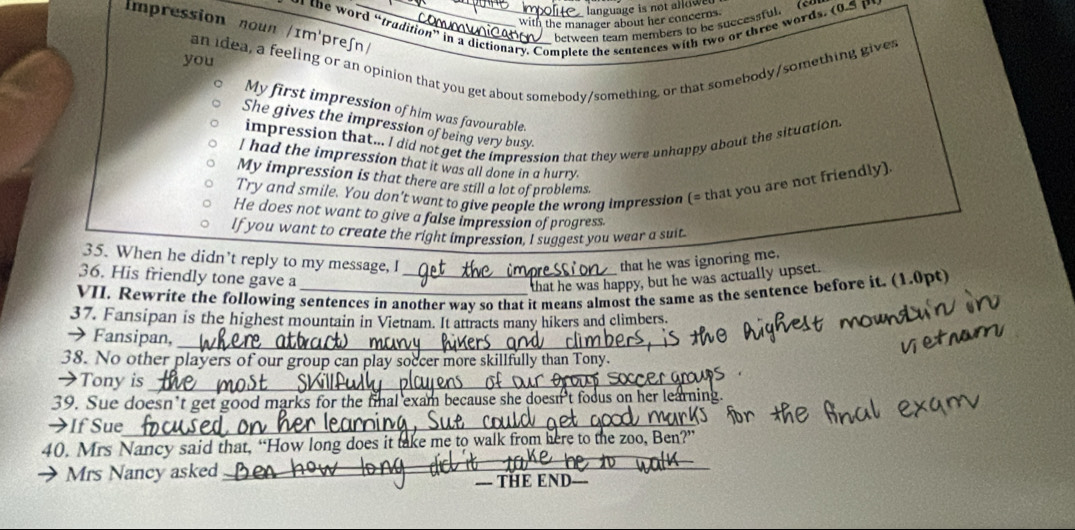 impolite language is not allowed
with the manager about her concerns.
communication between team members to be successful.
the word “tradition” in a dictionary. Complete the sentences with two or three words. (0.5 pt)
Impression noun /ɪmˈpreʃn/
an idea, a feeling or an opinion that you get about somebody/something, or that somebody/something gives
you
○ My first impression of him was favourable.
○ She gives the impression of being very busy.
○ impression that... I did not get the impression that they were unhappy about the situation.
○ I had the impression that it was all done in a hurry.
○ My impression is that there are still a lot of problems.
○ Try and smile. You don't want to give people the wrong impression (= that you are not friendly).
○ He does not want to give a false impression of progress.
○ If you want to create the right impression, I suggest you wear a suit.
35. When he didn't reply to my message, I get the impression that he was ignoring me.
36. His friendly tone gave a ______ that he was happy, but he was actually upset.
VII. Rewrite the following sentences in another way so that it means almost the same as the sentence before it. (1.0pt)
37. Fansipan is the highest mountain in Vietnam. It attracts many hikers and climbers.
→ Fansipan, where attracts many hikers and climbers, is the highest mountain in
vietnam
38. No other players of our group can play soccer more skillfully than Tony.
→ Tony is the most skillfully players of our soccer groups.
39. Sue doesn't get good marks for the final exam because she doesn't focus on her learning.
→ If Sue focused on her learning, Sue could get good marks for the final exam
40. Mrs Nancy said that, “How long does it take me to walk from here to the zoo, Ben?”
→ Mrs Nancy asked Ben how long did it take he to walk
— THE END—